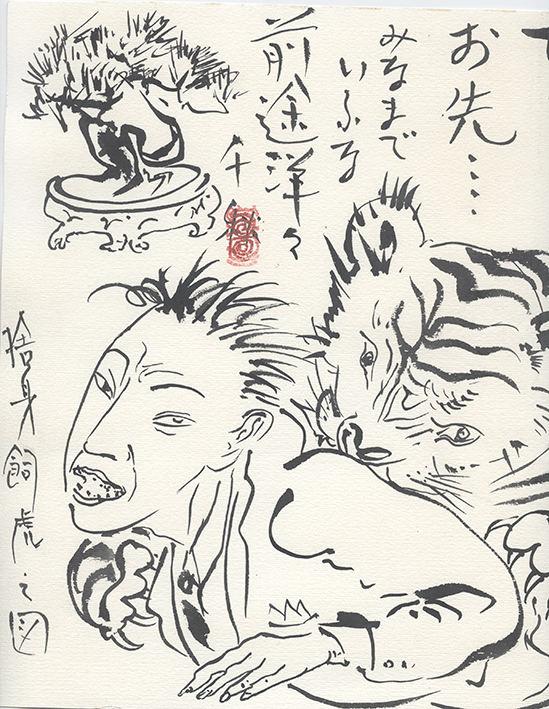 お先....
みなまで
いふな
前途洋々
捨身飼虎之図